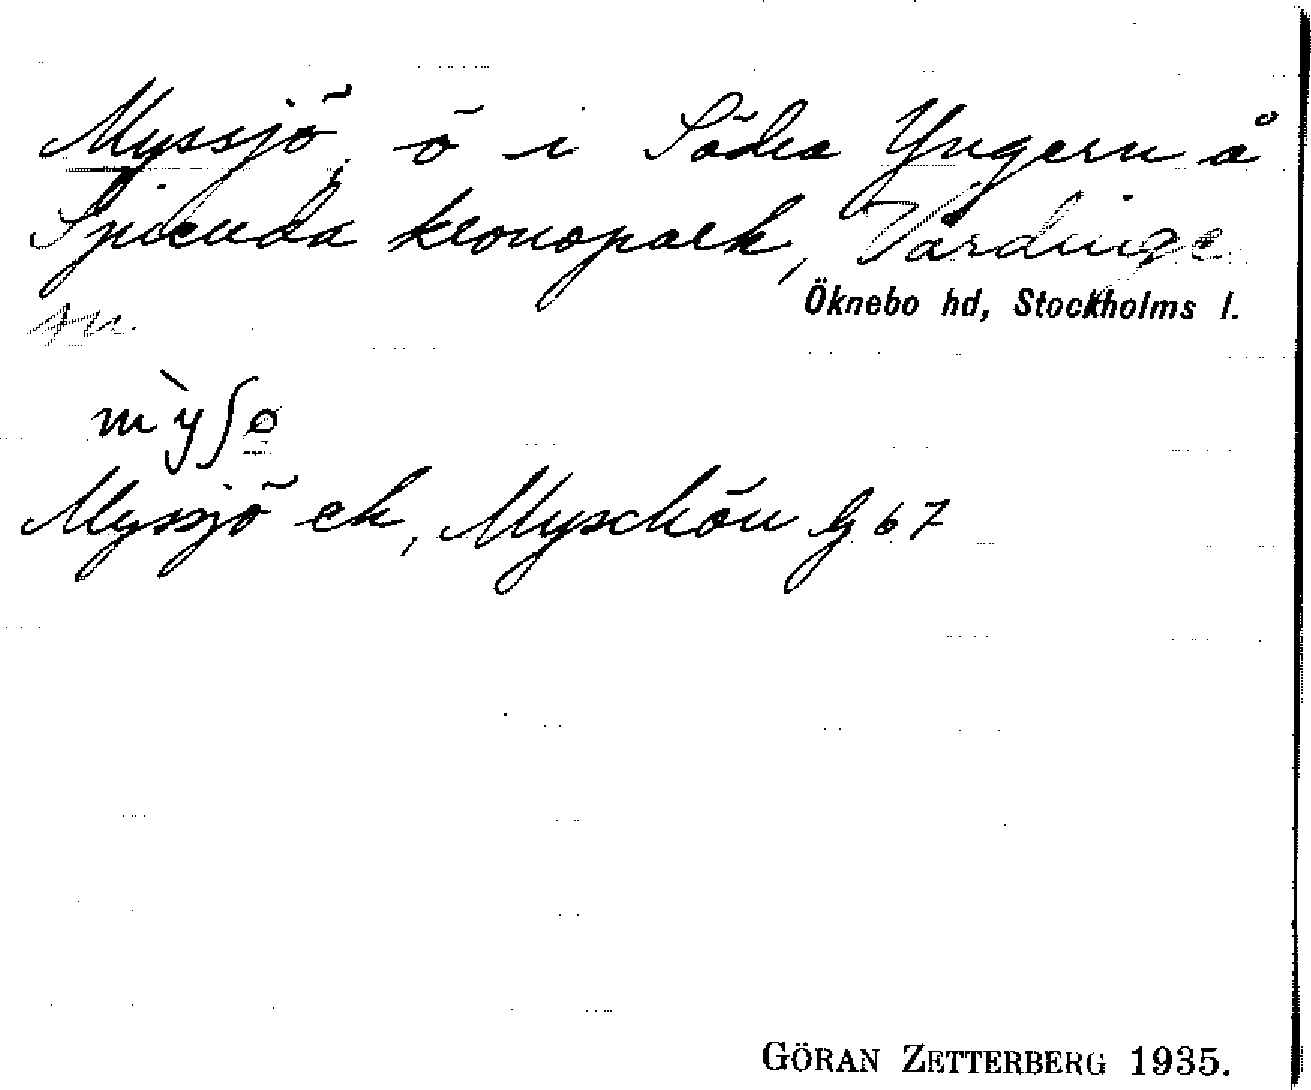 Myssjö, ö i Södra Yngern å
kronopark, Vårdinge
sn.
Öknebo hd, Stockholms l.
mỳʃø
Myssjö ek, Myschön lj 67
GÖRAN ZETTERBERG 1935.